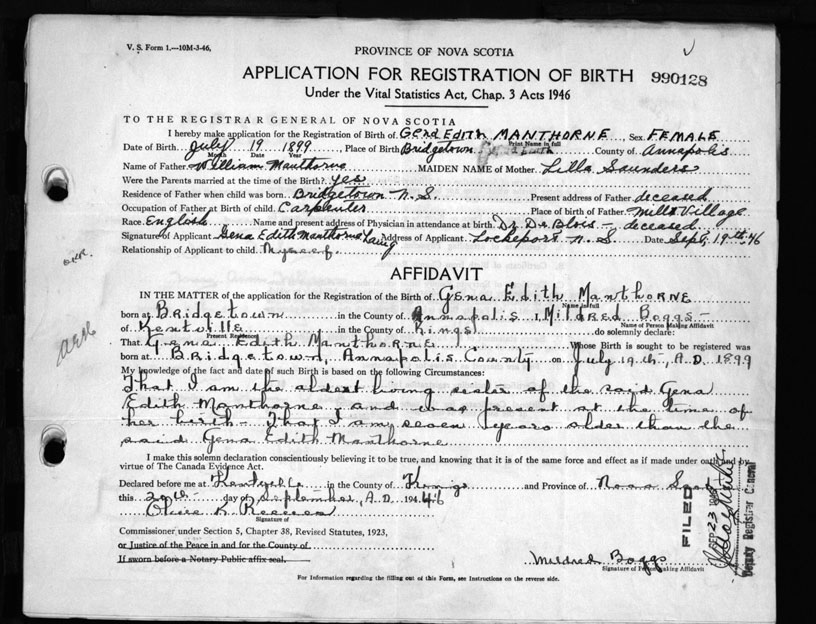 V. S. Form 1.—10M-3-46.
PROVINCE OF NOVA SCOTIA
APPLICATION FOR REGISTRATION OF BIRTH 990128
Under the Vital Statistics Act, Chap. 3 Acts 1946
TO THE REGISTRAR GENERAL OF NOVA SCOTIA
I hereby make application for the Registration of Birth of GENA EDITH MANTHORNE, Sex FEMALE
Print Name in full
Date of Birth July 19 1899 Place of Birth Bridgetown County of Annapolis
Month Date Year
Name of Father William Manthorne MAIDEN NAME of Mother Lilla Saunders
Were the Parents married at the time of the Birth? Yes
Residence of Father when child was born Bridgetown N.S. Present address of Father deceased
Occupation of Father at Birth of child Carpenter Place of birth of Father Mills Village
Race English Name and present address of Physician in attendance at birth Dr. De Blois — deceased
Signature of Applicant Gena Edith Manthorne Laing Address of Applicant Lockeport N.S. Date Sept. 19th 46
Relationship of Applicant to child Myself
AFFIDAVIT
IN THE MATTER of the application for the Registration of the Birth of GENA EDITH MANTHORNE
Name in full
born at Bridgetown in the County of Annapolis I, Mildred Boggs
Name of Person Making Affidavit
of Kentville in the County of Kings do solemnly declare:
Present Residence
That Gena Edith Manthorne Whose Birth is sought to be registered was
born at Bridgetown, Annapolis County on July 19th, A.D. 1899
My knowledge of the fact and date of such Birth is based on the following Circumstances:
That I am the oldest living sister of the said Gena
Edith Manthorne, and was present at the time of
her birth - That I am seven years older than the
said Gena Edith Manthorne
I make this solemn declaration conscientiously believing it to be true, and knowing that it is of the same force and effect as if made under oath and by
virtue of The Canada Evidence Act.
Declared before me at Kentville in the County of Kings and Province of Nova Scotia
this 20th day of September, A.D. 1946
Olive R. Reeves
Signature of
Commissioner under Section 5, Chapter 38, Revised Statutes, 1923,
or Justice of the Peace in and for the County of
If sworn before a Notary Public affix seal.
Mildred Boggs
Signature of Person Making Affidavit
FILED
SEP 23 1946
Deputy Registrar General
For Information regarding the filling out of this Form, see Instructions on the reverse side.